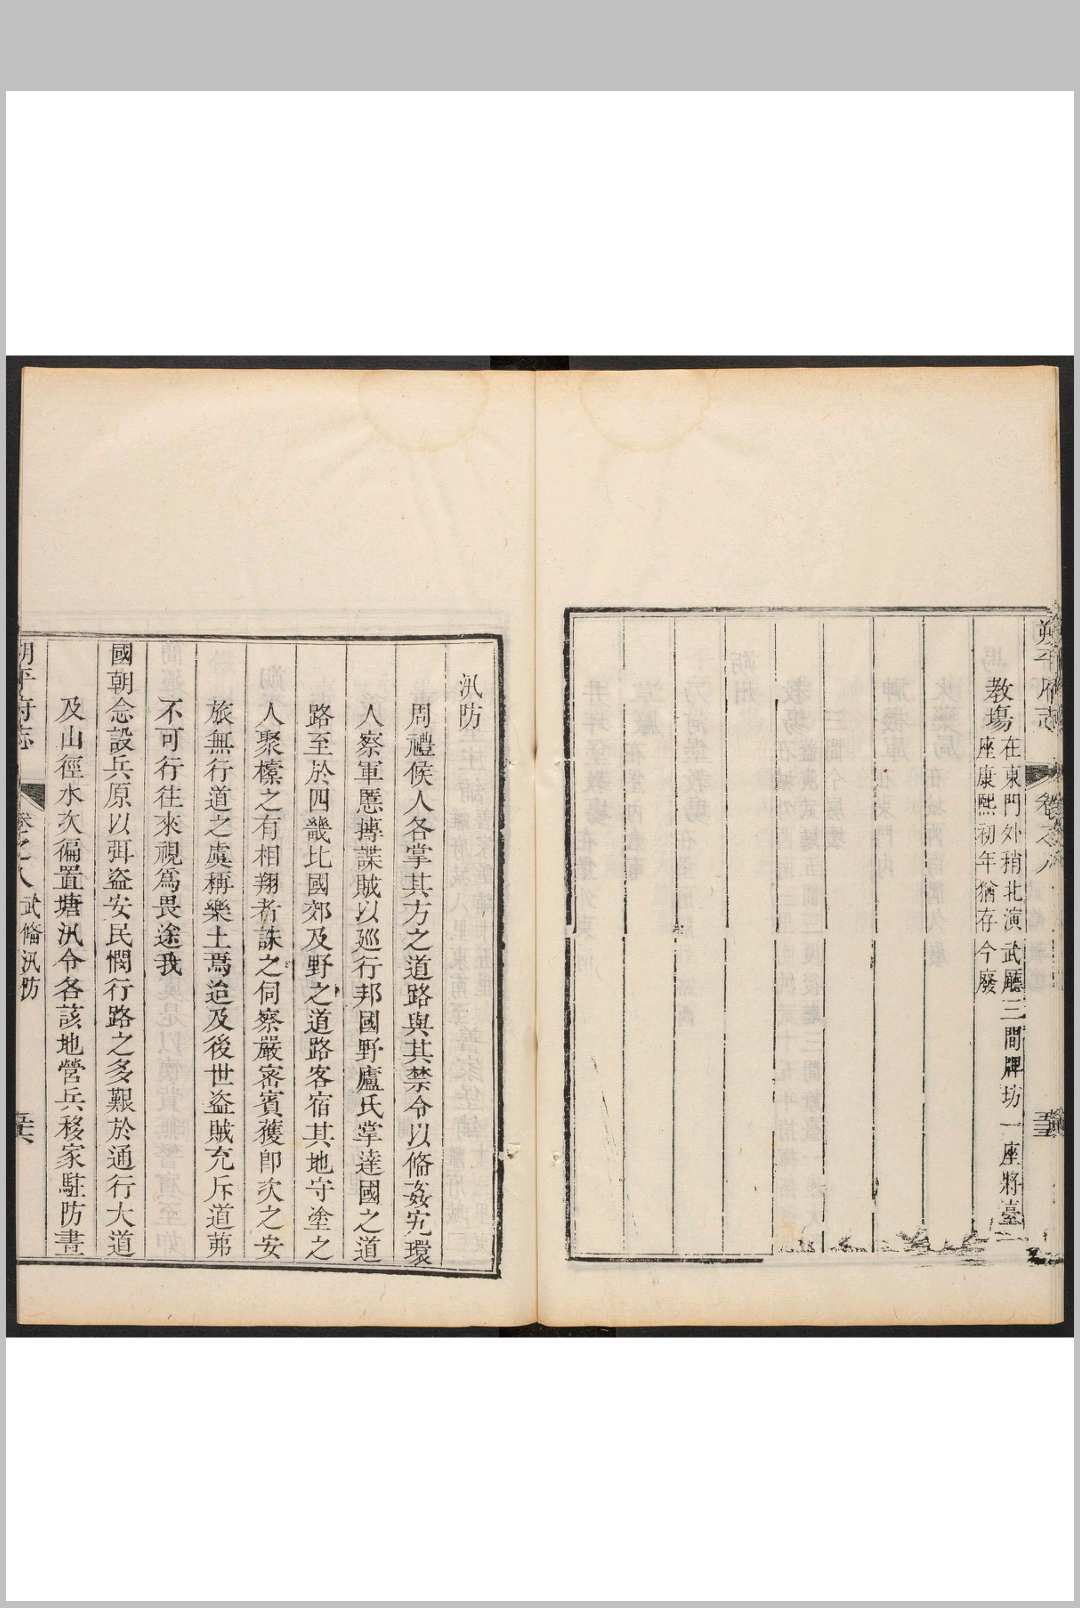 朔平府志
卷之八
教塲在東門外稍北演武廳三間牌坊一座將臺
座康熙初年猶存今廢
汛防
周禮候人各掌其方之道路與其禁令以脩姦宄環
人察軍慝摶諜賊以廵行邦國野廬氏掌達國之道
路至於四畿比國郊及野之道路客宿其地守塗之
人聚㯓之有相翔者誅之伺察嚴密賓獲卽次之安
旅無行道之虞稱樂土焉迨及後世盗賊充斥道茀
不可行徃來視爲畏途我
國朝念設兵原以弭盗安民憫行路之多艱於通行大道
及山徑水次徧置塘汛令各該地營兵移家駐防晝
朔平府志
卷之八
武脩汛防